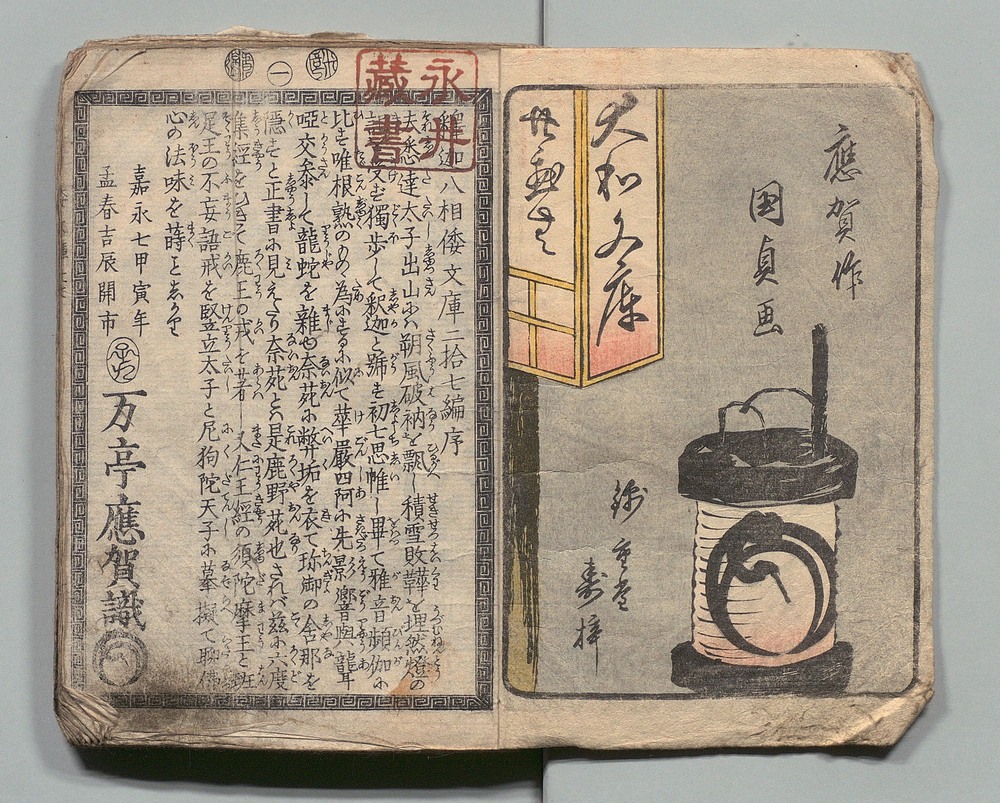 應賀作
國貞画
大和文庫
廿七
錦重堂
壽梓
永井
藏書
一
釋迦八相倭文庫二拾七編序
去程悉達太子出山に朔風破衲を飄し積雪敗鞾を埋然燈の
獨歩して釈迦と号を初七思惟し畢て雅音頻伽に
比を唯根熟のもの為にするに似て華嚴四阿に先景響與龍耳
啞交参して龍蛇を雜也奈苑に弊垢を衣て珎御の舎那を
隱せと正書に見えたり奈苑とは是鹿野苑也されバ茲に六度
集經を引て鹿王の戒を著し又仁王經の須陀摩王と班
足王の不妄語戒を竪立太子と尼狗陀天子に摹擬て聊佛
心の法味を蒔
嘉永七甲寅年
孟春吉辰開市
万亭應賀識